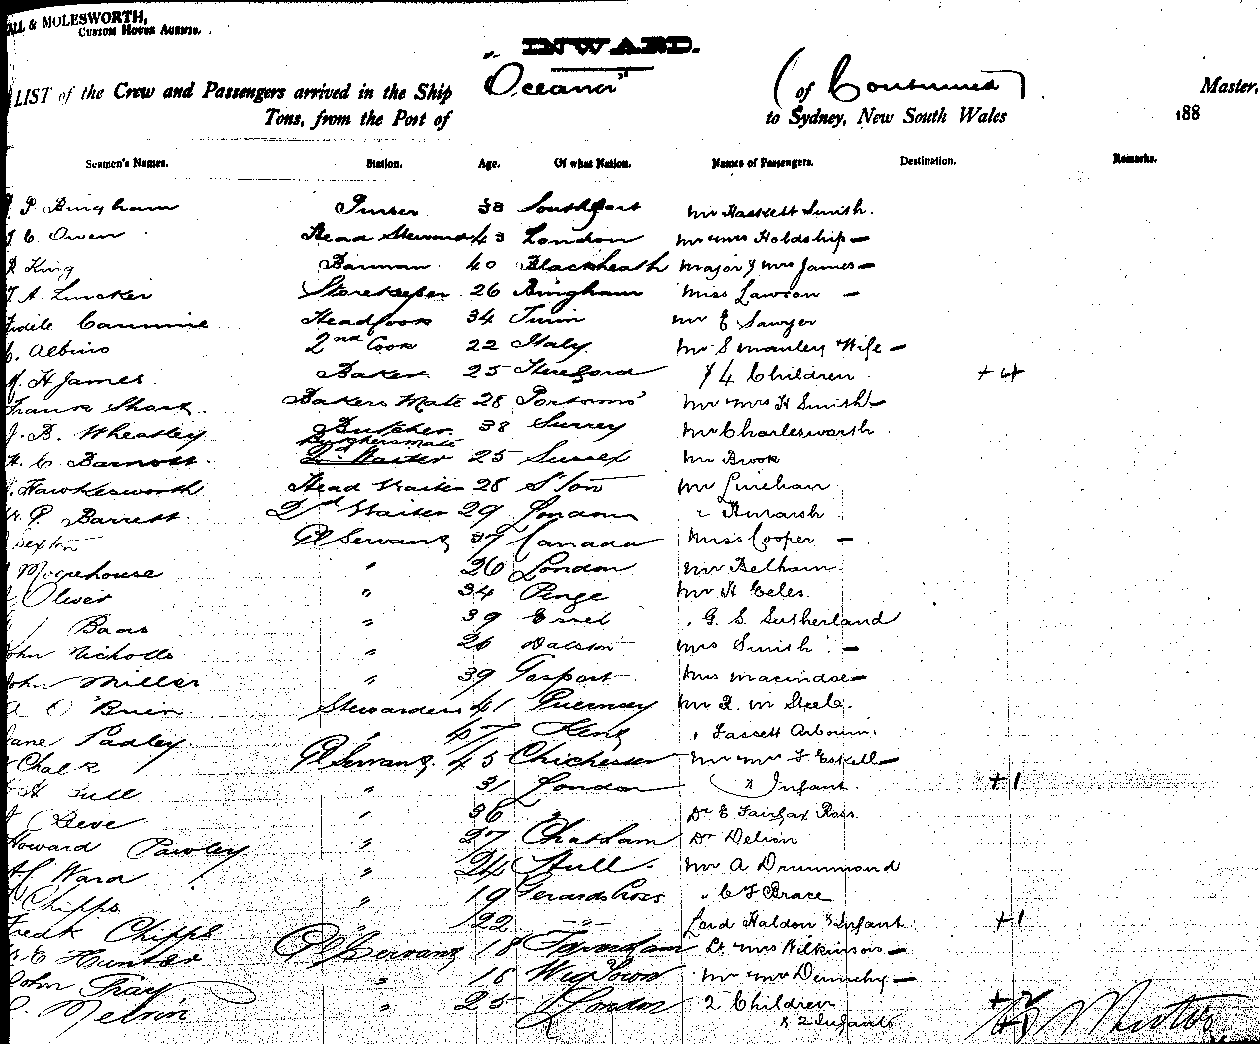 ALL & MOLESWORTH,
CUSTOM HOUSE AGENTS.
INWARD.
LIST of the Crew and Passengers arrived in the Ship "Oceana" (of Continued) Master,
Tons, from the Port of to Sydney, New South Wales 188
Seamen's Names. Station. Age. Of what Nation. Names of Passengers. Destination. Remarks.
P. Bingham Purser 38 Southport Mr Haskett Smith.
C. Owen Head Steward 43 London Mr & Mrs Holdship —
King Barman 40 Blackheath Major & Mrs James —
A. Lucker Storekeeper 26 Bingham Miss Lawson —
Head Cook 34 Turin Mr E Sawyer
Albino 2nd Cook 22 Italy. Mr S Manley Wife —
H James. Baker 25 Hereford & 4 Children + 4
Frank Sharp. Bakers Mate 28 Portsmo' Mr Mrs H Smith —
J. B. Wheatley Butcher 38 Surrey Mr Charlesworth
H. C. Barnott. Butchersmate 2nd Waiter 25 Sussex Mr Brook
Hawkesworth Head Waiter 28 Mr Linehan
P. Barrett 2nd Waiter 29 London
Sexton Gl Servant 37 Canada Miss Cooper —
Moorehouse " 26 London Mr Belham
Oliver " 34 Penge Mr H Eeles
" 39 " G. S. Sutherland
John Nicholls " 26 Dalston Mrs Smith —
John Miller " 39 Gosport Mrs Macindoe —
O'Brien Stewardess 41 Guernsey Mr Steele.
Jane Padley " 47 Kent " Fassett
Chalk Gl Servant. 45 Chichester Mr Mrs —
H Tull " 31 London & Infant. + 1
Reeve " 36 " Dr E Fairfax Ross.
Howard Pawley " 27 Chatham Dr
H Ward " 24 Hull. Mr A Drummond
Chipps " 19 Gerards Cross " C F Brace
Frank Chipps " 22 " Lord Haldon & Infant + 1
E Hunter Gl Servant 18 Faversham Lt Mrs Wilkinson —
John Gray " 18 Wigtown Mr Mrs Dennehy —
Melvin " 25 London 2 Children
& 2 Infants